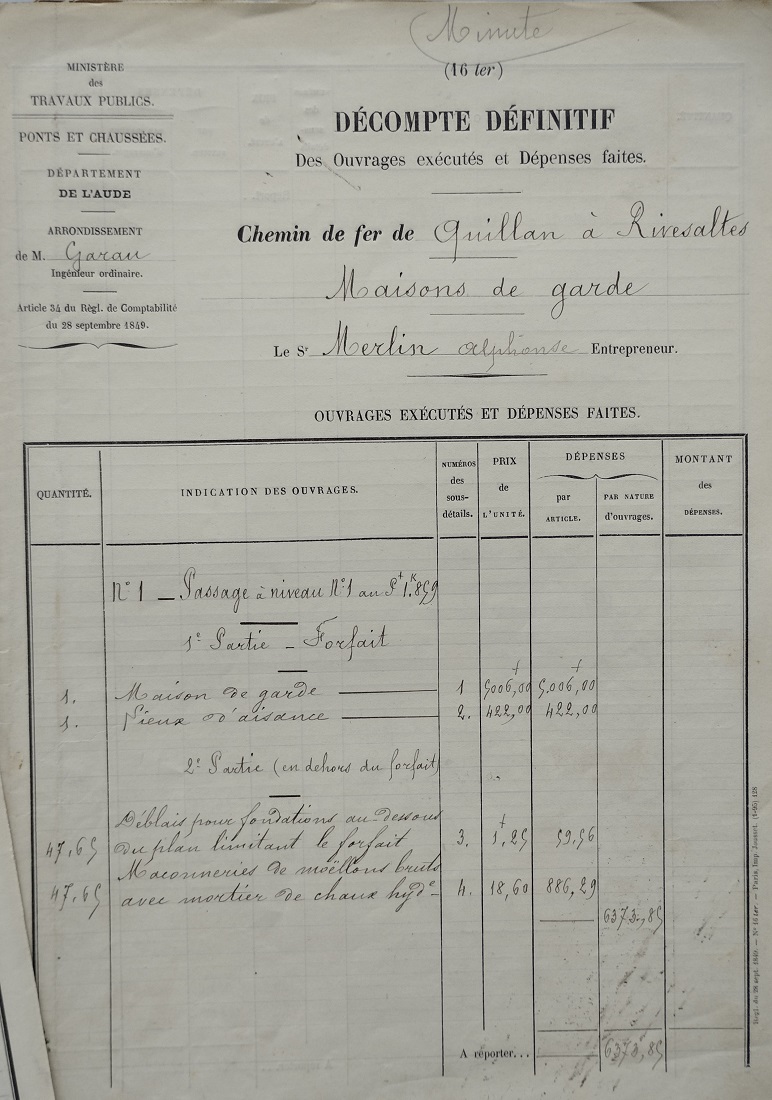 Minute
(16 ter)
MINISTÈRE
des
TRAVAUX PUBLICS.
PONTS ET CHAUSSÉES.
DÉPARTEMENT
DE L'AUDE
ARRONDISSEMENT
de M. Garau
Ingénieur ordinaire.
Article 34 du Règl. de Comptabilité
du 28 septembre 1849.
DÉCOMPTE DÉFINITIF
Des Ouvrages exécutés et Dépenses faites.
Chemin de fer de Quillan à Rivesaltes
Maisons de garde
Le Sr Merlin alphonse Entrepreneur.
OUVRAGES EXÉCUTÉS ET DÉPENSES FAITES.
QUANTITÉ. INDICATION DES OUVRAGES. NUMÉROS des sous-détails. PRIX de L'UNITÉ. DÉPENSES par ARTICLE. PAR NATURE d'ouvrages. MONTANT des DÉPENSES.
N° 1 — Passage à niveau N° 1 au Pt 1K.859
1e Partie — Forfait
1. Maison de garde 1 5006,00 5.006,00
1. Lieux d'aisance 2. 422,00 422,00
2e Partie (en dehors du forfait)
Déblais pour fondations au dessous
47,65 du plan limitant le forfait 3. 1,25 59,56
Maconneries de moëllons bruts
47,65 avec mortier de chaux hyde 4. 18,60 886,29
6373,85
A reporter... 6373,85
Règl. du 28 sept. 1849. — N° 16 ter. — Paris, Imp. Jousset. (1-95) 128